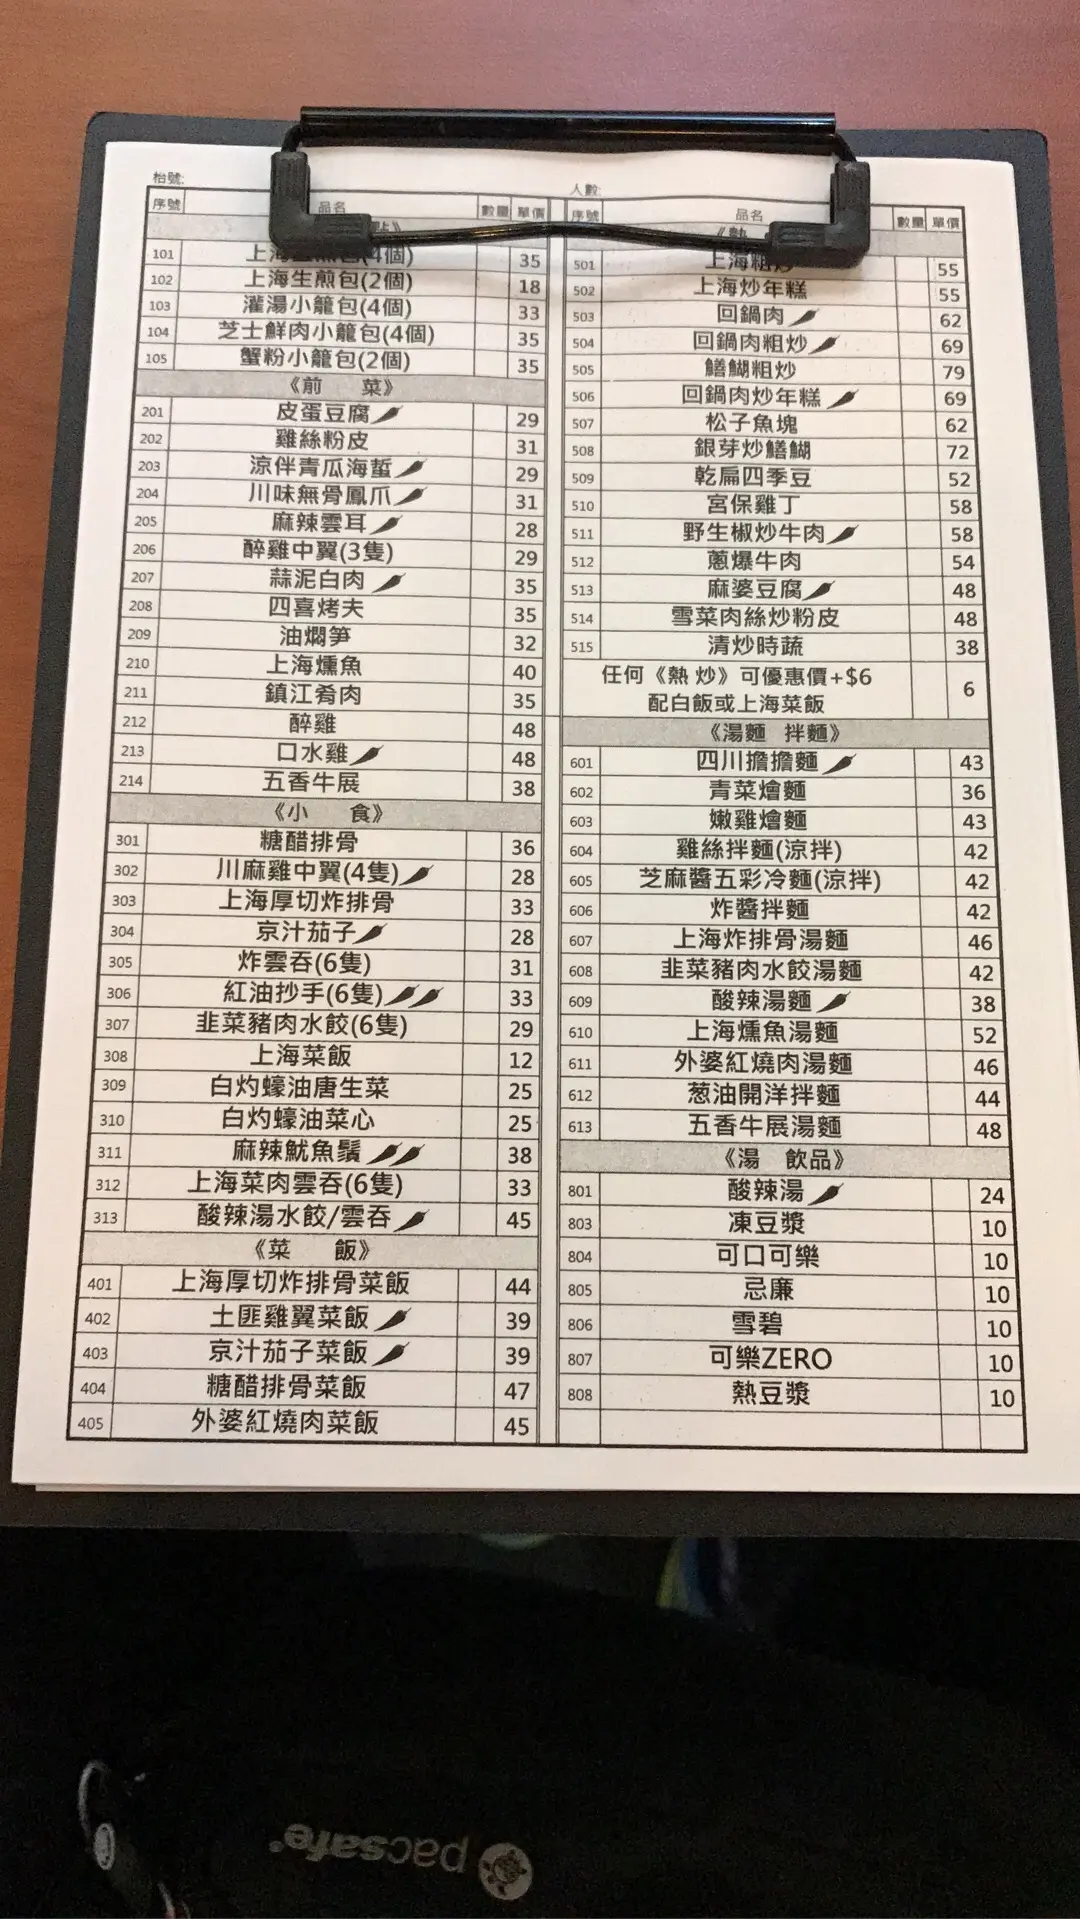 枱號:
人數:
序號 品名 數量 單價
點》
101 上海生煎包(4個) 35
102 上海生煎包(2個) 18
103 灌湯小籠包(4個) 33
104 芝士鮮肉小籠包(4個) 35
105 蟹粉小籠包(2個) 35
《前 菜》
201 皮蛋豆腐 29
202 雞絲粉皮 31
203 涼伴青瓜海蜇 29
204 川味無骨鳳爪 31
205 麻辣雲耳 28
206 醉雞中翼(3隻) 29
207 蒜泥白肉 35
208 四喜烤夫 35
209 油燜笋 32
210 上海燻魚 40
211 鎮江肴肉 35
212 醉雞 48
213 口水雞 48
214 五香牛展 38
《小 食》
301 糖醋排骨 36
302 川麻雞中翼(4隻) 28
303 上海厚切炸排骨 33
304 京汁茄子 28
305 炸雲吞(6隻) 31
306 紅油抄手(6隻) 33
307 韭菜豬肉水餃(6隻) 29
308 上海菜飯 12
309 白灼蠔油唐生菜 25
310 白灼蠔油菜心 25
311 麻辣魷魚鬚 38
312 上海菜肉雲吞(6隻) 33
313 酸辣湯水餃/雲吞 45
《菜 飯》
401 上海厚切炸排骨菜飯 44
402 土匪雞翼菜飯 39
403 京汁茄子菜飯 39
404 糖醋排骨菜飯 47
405 外婆紅燒肉菜飯 45
序號 品名 數量 單價
《熱
501 上海粗炒 55
502 上海炒年糕 55
503 回鍋肉 62
504 回鍋肉粗炒 69
505 鱔餬粗炒 79
506 回鍋肉炒年糕 69
507 松子魚塊 62
508 銀芽炒鱔餬 72
509 乾扁四季豆 52
510 宮保雞丁 58
511 野生椒炒牛肉 58
512 蔥爆牛肉 54
513 麻婆豆腐 48
514 雪菜肉絲炒粉皮 48
515 清炒時蔬 38
任何《熱 炒》可優惠價+$6 6
配白飯或上海菜飯
《湯麵 拌麵》
601 四川擔擔麵 43
602 青菜燴麵 36
603 嫩雞燴麵 43
604 雞絲拌麵(涼拌) 42
605 芝麻醬五彩冷麵(涼拌) 42
606 炸醬拌麵 42
607 上海炸排骨湯麵 46
608 韭菜豬肉水餃湯麵 42
609 酸辣湯麵 38
610 上海燻魚湯麵 52
611 外婆紅燒肉湯麵 46
612 葱油開洋拌麵 44
613 五香牛展湯麵 48
《湯 飲品》
801 酸辣湯 24
803 凍豆漿 10
804 可口可樂 10
805 忌廉 10
806 雪碧 10
807 可樂ZERO 10
808 熱豆漿 10
pacsafe